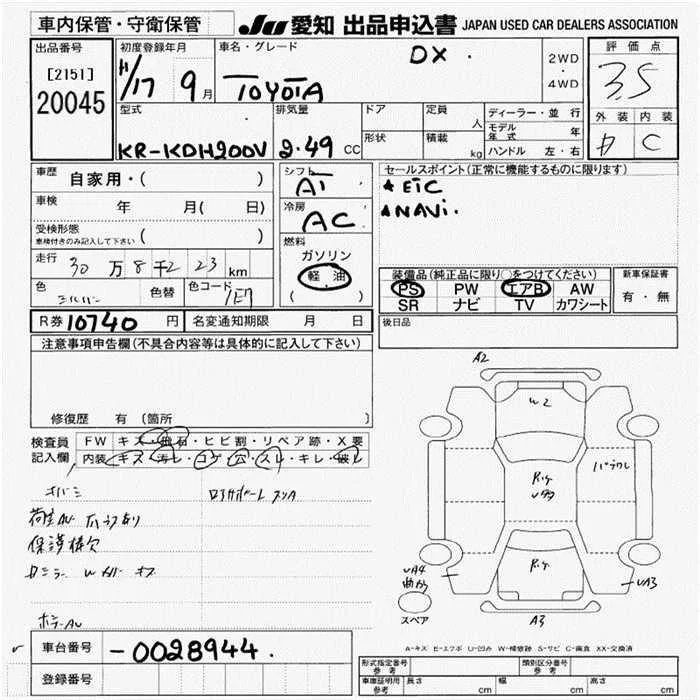 車内保管・守衛保管 JU 愛知 出品申込書 JAPAN USED CAR DEALERS ASSOCIATION
出品番号
[2151]
20045
初度登録年月
H/17 9月
車名・グレード
TOYOTA
DX
2WD
・
4WD
評価点
3.5
外装 内装
C
型式
KR-KDH200V
排気量
2.49 CC
ドア
形状
定員 人
積載 kg
ディーラー・並行
モデル年式 年
ハンドル 左・右
車歴 自家用・( )
車検 年 月( 日)
受検形態
車検付きのみ記入して下さい ( )
走行 30万8千2 23 km
色 シルバー 色替 色コード 1E7
シフト
AT
冷房
AC
燃料
ガソリン
軽油
( )
セールスポイント(正常に機能するものに限ります)
★ETC
★NAVi.
装備品(純正品に限り○をつけてください)
PS PW エアB AW
SR ナビ TV カワシート
新車保証書
有・無
R券 10740 円 名変通知期限 月 日
後日品
注意事項申告欄(不具合内容等は具体的に記入して下さい)
修復歴 有 (箇所 )
検査員
記入欄
FW キズ・飛石・ヒビ割・リペア跡・X要
内装 キズ・汚レ・コゲ・穴・スレ・キレ・破レ
保護棒欠
A2
W2
Rケ
U43
Rケ
UA4
UA3
A3
スペア
A-キズ E-エクボ U-凹み W-補修跡 S-サビ C-腐食 XX-交換済
車台番号 -0028944.
登録番号
形式指定番号
参考
類別区分番号
参考
車庫証明用
参考
長さ cm 幅 cm 高さ cm